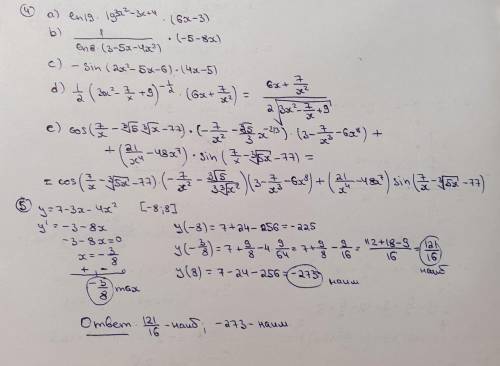 ④ a) ln19 · 19^(3x²-3x+4) · (6x-3)
b) 1/(ln8·(3-5x-4x²)) · (-5-8x)
c) -sin(2x²-5x-6)·(4x-5)
d) 1/2 (3x²-7/x+9)^(-1/2) · (6x+7/x²) = (6x+7/x²)/(2√(3x²-7/x+9))
e) cos(7/x-∛5 ∛x-77)·(-7/x²-∛5/3 x^(-2/3))·(3-7/x³-6x⁸)+
+(21/x⁴-48x⁷)·sin(7/x-∛5x-77)=
=cos(7/x-∛5x-77)(-7/x²-∛5/(3∛x²))(3-7/x³-6x⁸)+(21/x⁴-48x⁷)sin(7/x-∛5x-77)
⑤ y=7-3x-4x² [-8;8]
y'=-3-8x
-3-8x=0
x=-3/8
+ -
-3/8 max
y(-8)=7+24-256=-225
y(-3/8)=7+9/8-4·9/64=7+9/8-9/16=(112+18-9)/16=121/16 наиб
y(8)=7-24-256=-273 наим
Ответ: 121/16-наиб; -273-наим